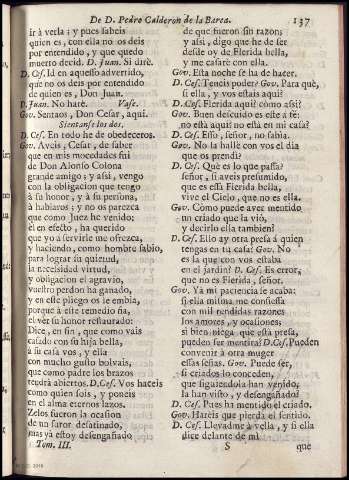 De D. Pedro Calderon de la Barca. 137
ir à verla; y pues sabeis
quien es, con ella no os deis
por entendido, y que quedo
muerto decid. D. Juan. Si dirè.
D. Ces. Id en aquesso advertido,
que no os deis por entendido
de quien es, Don Juan.
D. Juan. No harè. Vase.
Gov. Sentaos, Don Cesar, aqui.
Sientanse los dos.
D. Ces. En todo he de obedeceros.
Gov. Aveis, Cesar, de saber
que en mis mocedades fui
de Don Alonso Colona
grande amigo; y assi, vengo
con la obligacion que tengo
à su honor, y à su persona,
à hablaros; y no os parezca
que como Juez he venido;
el en efecto, ha querido
que yo à servirle me ofrezca,
y haciendo, como hombre sabio,
para lograr su quietud,
la necesidad virtud,
y obligacion el agravio,
vuestro perdon ha ganado,
y en este pliego os le embia,
porque à este remedio fia,
el ver su honor restaurado:
Dice, en fin, que como vais
casado con su hija bella,
à su casa vos, y ella
con mucho gusto bolvais,
que como padre los brazos
tendrà abiertos. D. Ces. Vos haceis
como quien sois, y poneis
en el alma eternos lazos.
Zelos fueron la ocasion
de un furor desatinado;
mas yà estoy desengañado
Tom. III.
de que fueron sin razon;
y assi, digo que he de ser
desde oy de Flerida bella,
y me casarè con ella.
Gov. Esta noche se ha de hacer.
D. Ces. Teneis poder? Gov. Para què,
si ella, y vos estais aqui?
D. Ces. Flerida aqui? còmo assi?
Gov. Buen descuido es este à fè:
no està aqui? no està en mi casa?
D. Ces. Essa, señor, no sabia.
Gov. No la hallè con vos el dia
que os prendi?
D. Ces. Què es lo que passa?
señor, si aveis presumido,
que es essa Flerida bella,
vive el Cielo, que no es ella.
Gov. Còmo puede aver mentido
un criado que la viò,
y decirlo ella tambien?
D. Ces. Ello ay otra presa à quien
tengas en tu casa? Gov. No
es la que con vos estaba
en el jardin? D. Ces. Es error,
que no es Flerida, señor.
Gov. Yà mi paciencia se acaba;
si ella misma me confiessa
con mil rendidas razones
los amores, y ocasiones;
si bien niega que està presa,
pueden ser mentira? D. Ces. Pueden
convenir à otra muger
essas señas. Gov. Puede ser,
si criados lo conceden,
que siguiendola han venido,
la han visto, y desengañado?
D. Ces. Pues ha mentido el criado.
Gov. Hareis que pierda el sentido.
D. Ces. Llevadme à vella, y si ella
dice delante de mi
S que